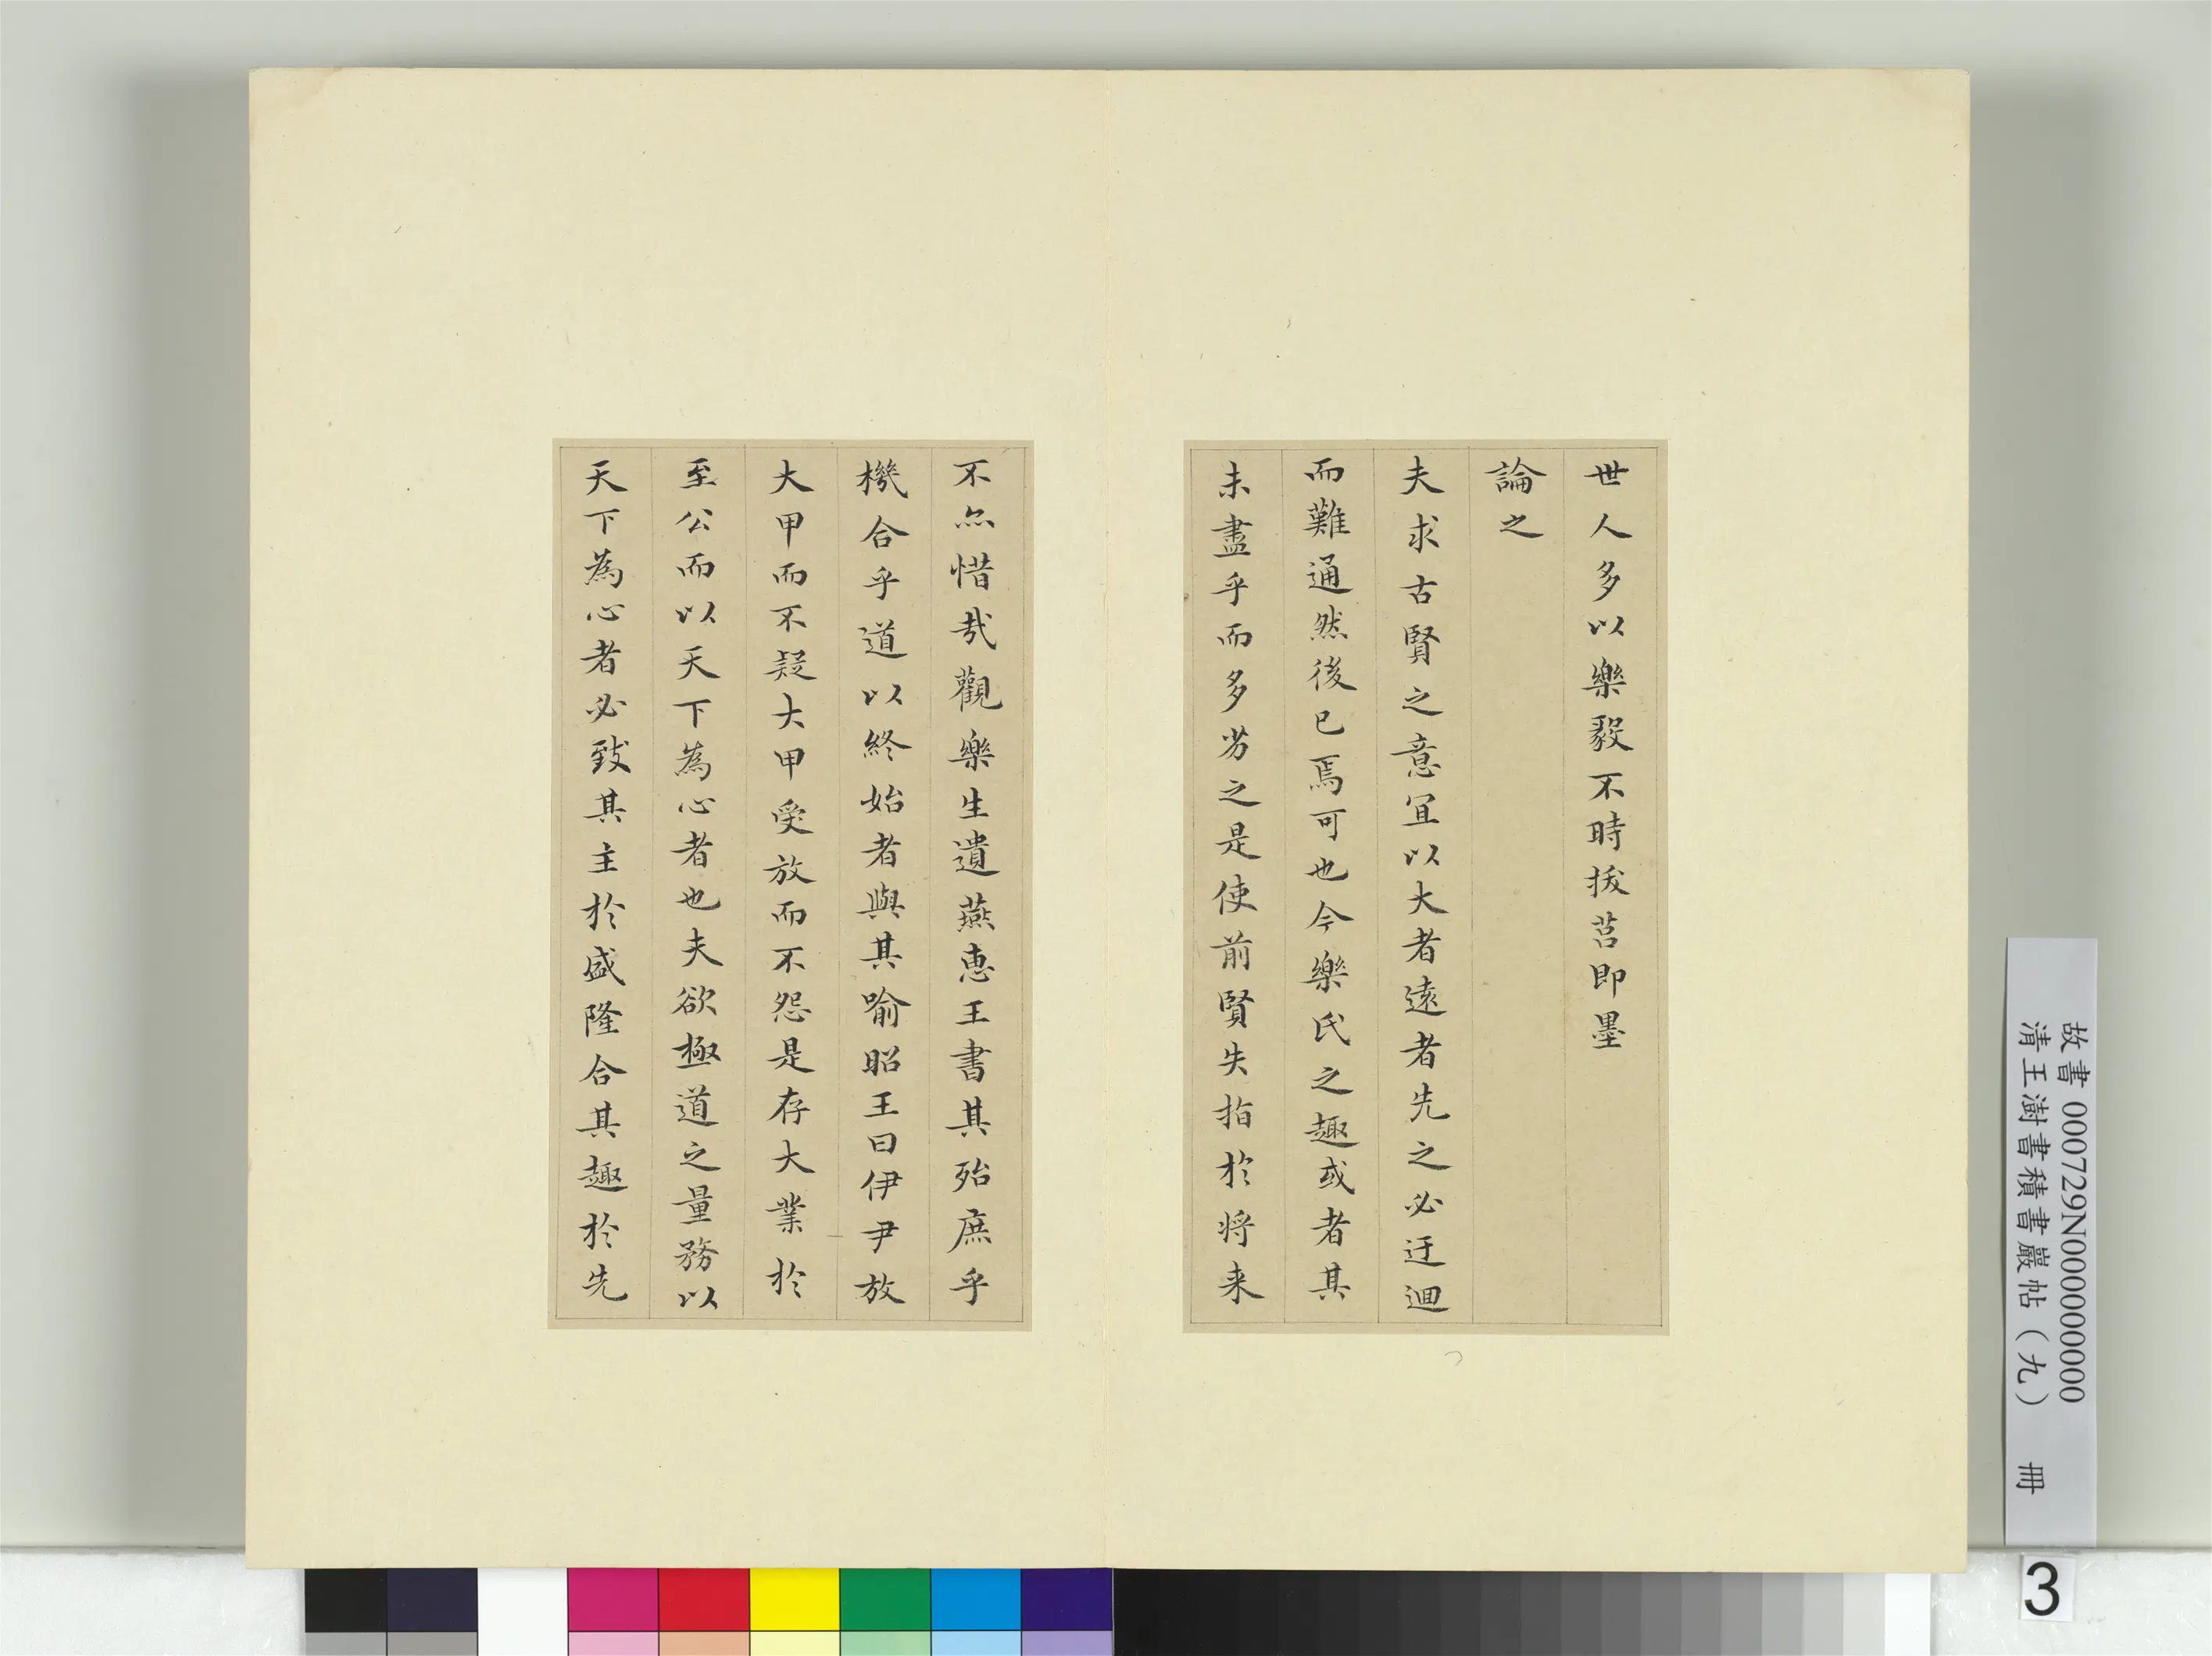 世人多以樂毅不時拔莒即墨
論之
夫求古賢之意宜以大者遠者先之必迂迴
而難通然後已焉可也今樂氏之趣或者其
未盡乎而多劣之是使前賢失指於將来
不亦惜哉觀樂生遺燕惠王書其殆庶乎
機合乎道以終始者與其喻昭王曰伊尹放
大甲而不疑大甲受放而不怨是存大業於
至公而以天下為心者也夫欲極道之量務以
天下為心者必致其主於盛隆合其趣於先
故書 000729N000000000
清王澍書積書巖帖(九) 冊
3